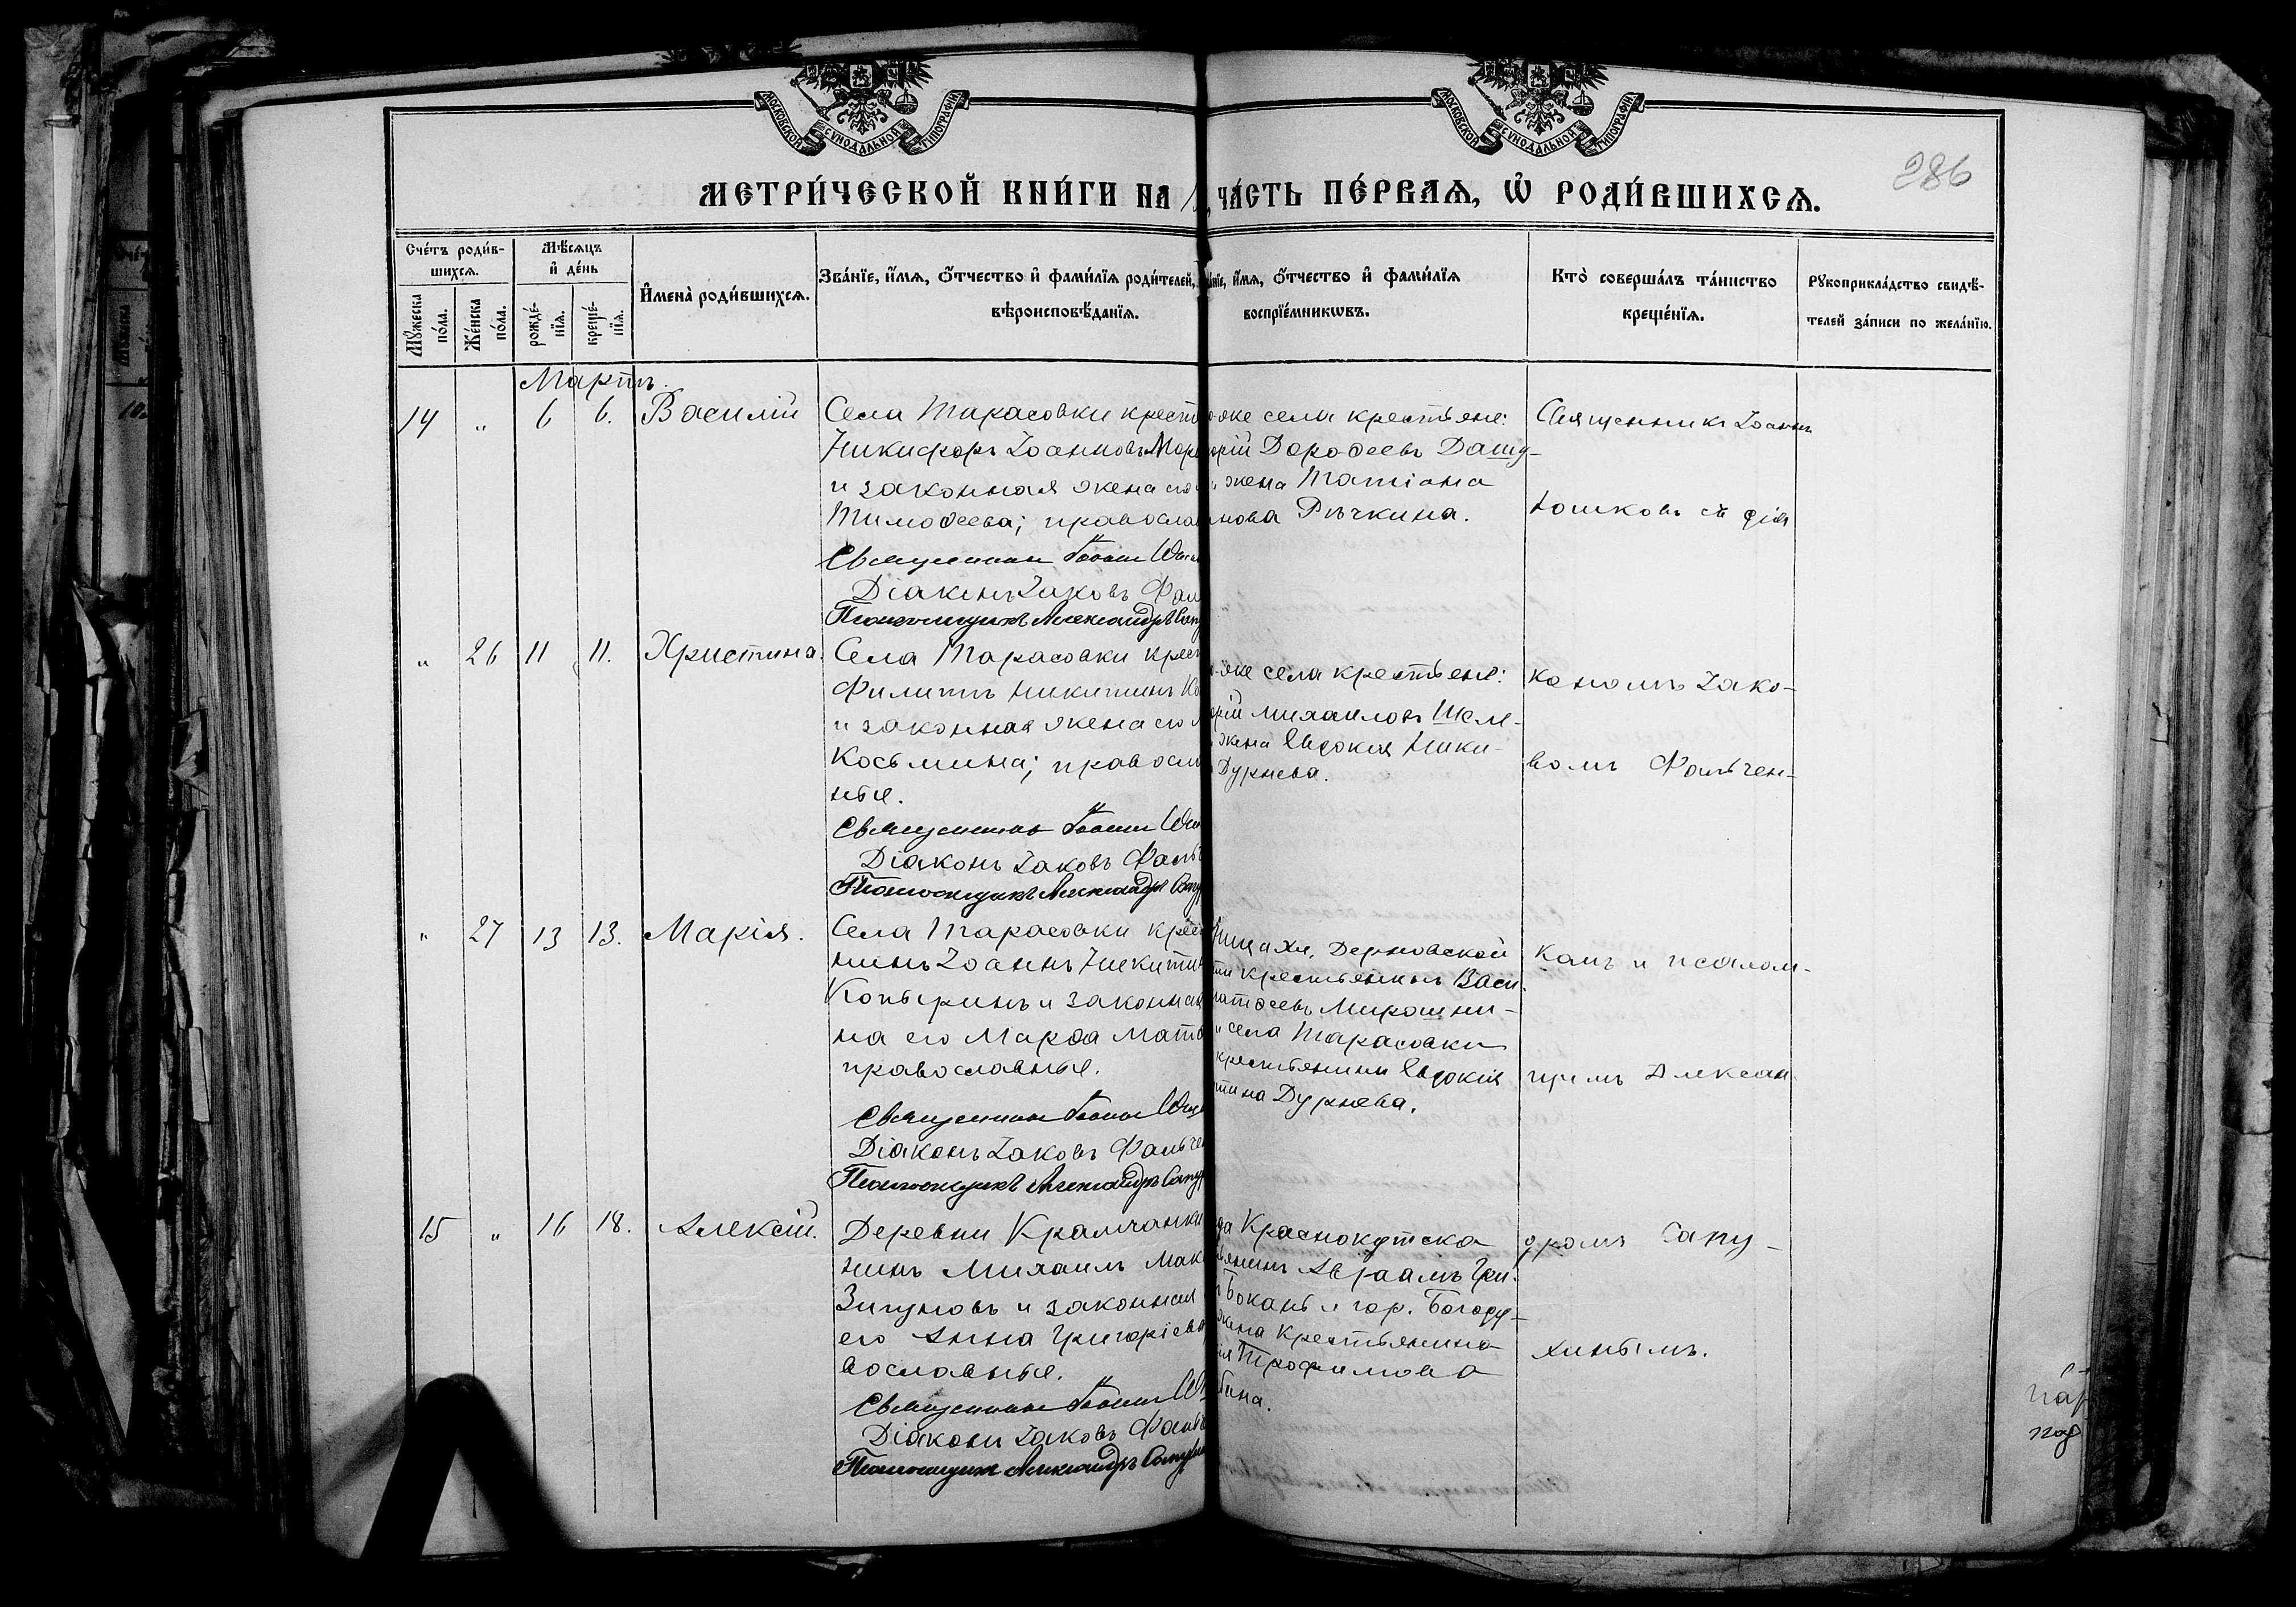 МОСКОВСКОЙ СѴНОДАЛЬНОЙ ТИПОГРАФІИ
МОСКОВСКОЙ СѴНОДАЛЬНОЙ ТИПОГРАФІИ
286
МЕТРИ́ЧЕСКОЙ КНИ́ГИ НА
ЧА́СТЬ ПЕ́РВАѦ, Ѡ҆ РОДИ́ВШИХСѦ.
Сче́тъ роди́в-
шихсѧ.
Мꙋ́жеска
по́ла.
Же́нска
по́ла.
Мѣ́сѧцъ
и҆ де́нь
рожде́-
нїѧ.
креще́-
нїѧ.
И҆мена̀ роди́вшихсѧ.
Зва́нїе, и҆́мѧ, ѻ҆́тчество и҆ фами́лїѧ роди́телей,
вѣроисповѣ́данїѧ.
и҆́мѧ, ѻ҆́тчество и҆ фами́лїѧ
воспрїе́мникѡвъ.
Кто̀ соверша́лъ та́инство
креще́нїѧ.
Рꙋкоприкла́дство свидѣ́-
телей за́писи по жела́нїю.
Мартъ.
14 " 6 6. Василій
Села Тарасовки крест
Никифоръ Іоанновъ Мар
и законная жена его
Тимоѳеева; правосла
Священникъ Іоаннъ
Діаконъ Іаковъ Фал
Псаломщикъ Александръ Сап
же села крестьяне:
Дороѳеевъ Дашу-
жена Татіана
нова Ръчкина.
Священникъ Іоаннъ
Юшковъ съ діа
" 26 11 11. Христина.
Села Тарасовки крес
Филиппъ Никитинъ Ко
и законная жена его
Косьмина; правосла
ные.
Священникъ Іоаннъ
Діаконъ Іаковъ Фаль
Псаломщикъ Александръ Сапу
же села крестьяне:
Михаиловъ Шел-
жена Евдокія Ники-
Дурнева.
кономъ Іако-
вомъ Фальчен-
" 27 13 13. Марія.
Села Тарасовки крес
нинъ Іоаннъ Никити
Копыринъ и законная
на его Марѳа Матв
православные.
Священникъ Іоаннъ
Діаконъ Іаковъ Фальче
Псаломщикъ Александръ Сапу
Дерновской
крестьянинъ Васи-
Мирошни-
и села Тарасовки
крестьянина Евдокія
тина Дурнева.
камъ и псалом-
щимъ Алексан
15 " 16 18. Алексій.
Деревни Крамчанки
нинъ Михаилъ Мак
Зигуновъ и законная
его Анна Григоріева
вославные.
Священникъ Іоаннъ
Діаконъ Іаковъ Фаль
Псаломщикъ Александръ Сапу
да Краснокутска
янинъ Авраамъ Гри-
Бокань и гор. Богоду-
жена крестьянина
Трофимова
бина.
дромъ Сапу-
хинымъ.